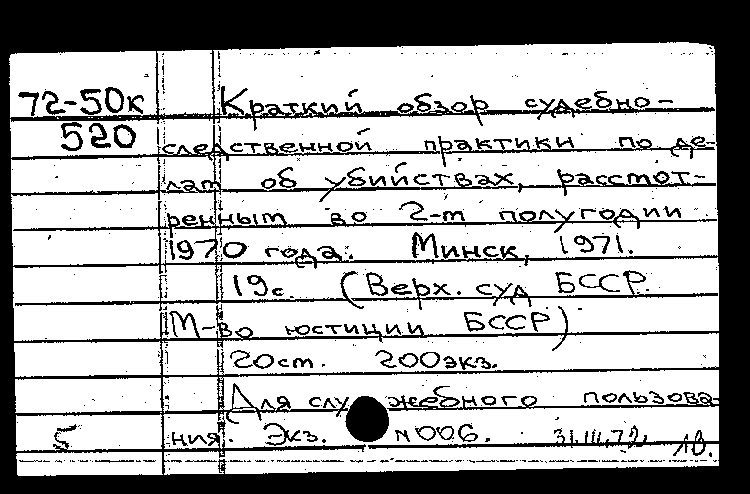 72-50к Краткий обзор судебно-
520 следственной практики по де-
лам об убийствах, рассмот-
ренным во 2-м полугодии
1970 года. Минск, 1971.
19с. (Верх. суд БССР.
М-во юстиции БССР)
20см. 200экз.
Для служебного пользова-
5 ния. Экз. N006. 31.III.72.